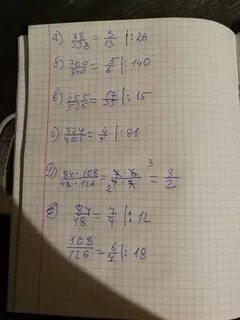 а) 78/338 = 3/13 |: 26
б) 700/840 = 5/6 |: 140
в) 255/525 = 17/35 |: 15
г) 324/405 = 4/5 |: 81
д) 84·108/48·126 = 7·6/4·7 = 3/2
84/48 = 7/4 |: 12
108/126 = 6/7 |: 18